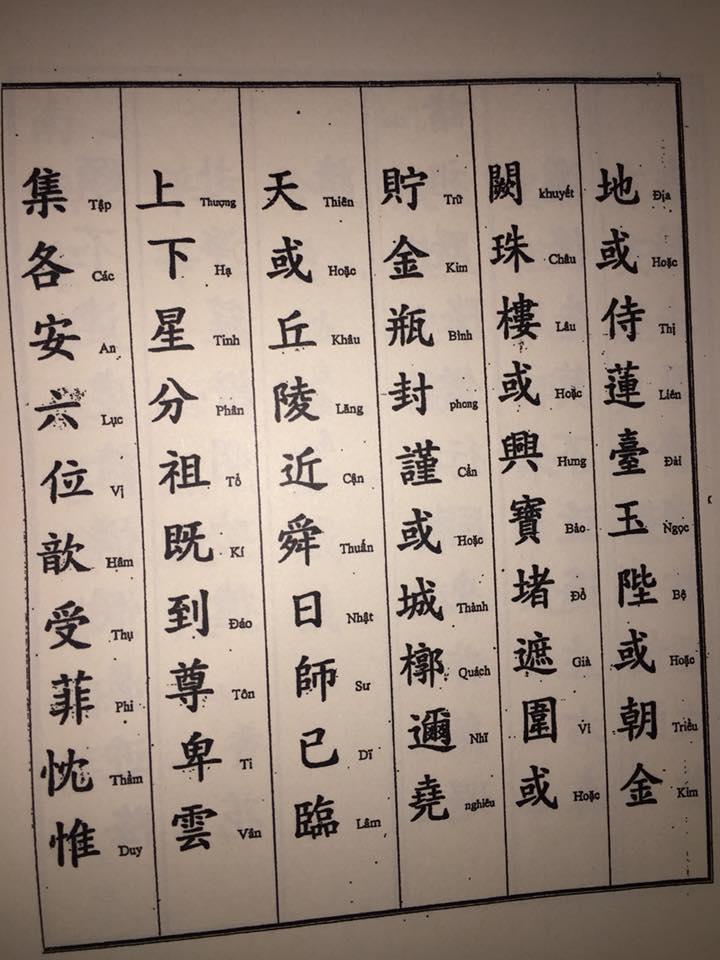 地 Địa 或 Hoặc 侍 Thị 蓮 Liên 臺 Đài 玉 Ngọc 陛 Bệ 或 Hoặc 朝 Triều 金 Kim
闕 khuyết 珠 Châu 樓 Lâu 或 Hoặc 興 Hưng 寶 Bảo 堵 Đổ 遮 Già 圍 Vi 或 Hoặc
貯 Trữ 金 Kim 瓶 Bình 封 phong 謹 Cẩn 或 Hoặc 城 Thành 槨 Quách 邇 Nhĩ 堯 nghiêu
天 Thiên 或 Hoặc 丘 Khâu 陵 Lăng 近 Cận 舜 Thuấn 日 Nhật 師 Sư 已 Dĩ 臨 Lâm
上 Thượng 下 Hạ 星 Tinh 分 Phân 祖 Tổ 既 Kí 到 Đáo 尊 Tôn 卑 Ti 雲 Vân
集 Tập 各 Các 安 An 六 Lục 位 Vị 歆 Hâm 受 Thụ 菲 Phi 忱 Thầm 惟 Duy